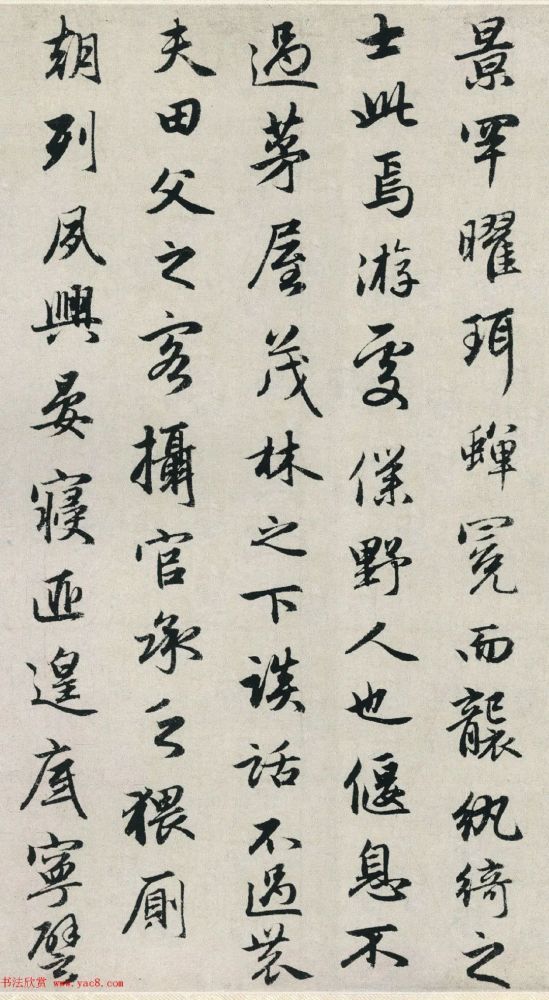 景罕曜珥蟬冕而襲紈綺之
士此焉游處僕野人也偃息不
過茅屋茂林之下談話不過農
夫田父之客攝官承乏猥厠
朝列夙興晏寢匪遑底寧譬
书法欣赏 www.yac8.com